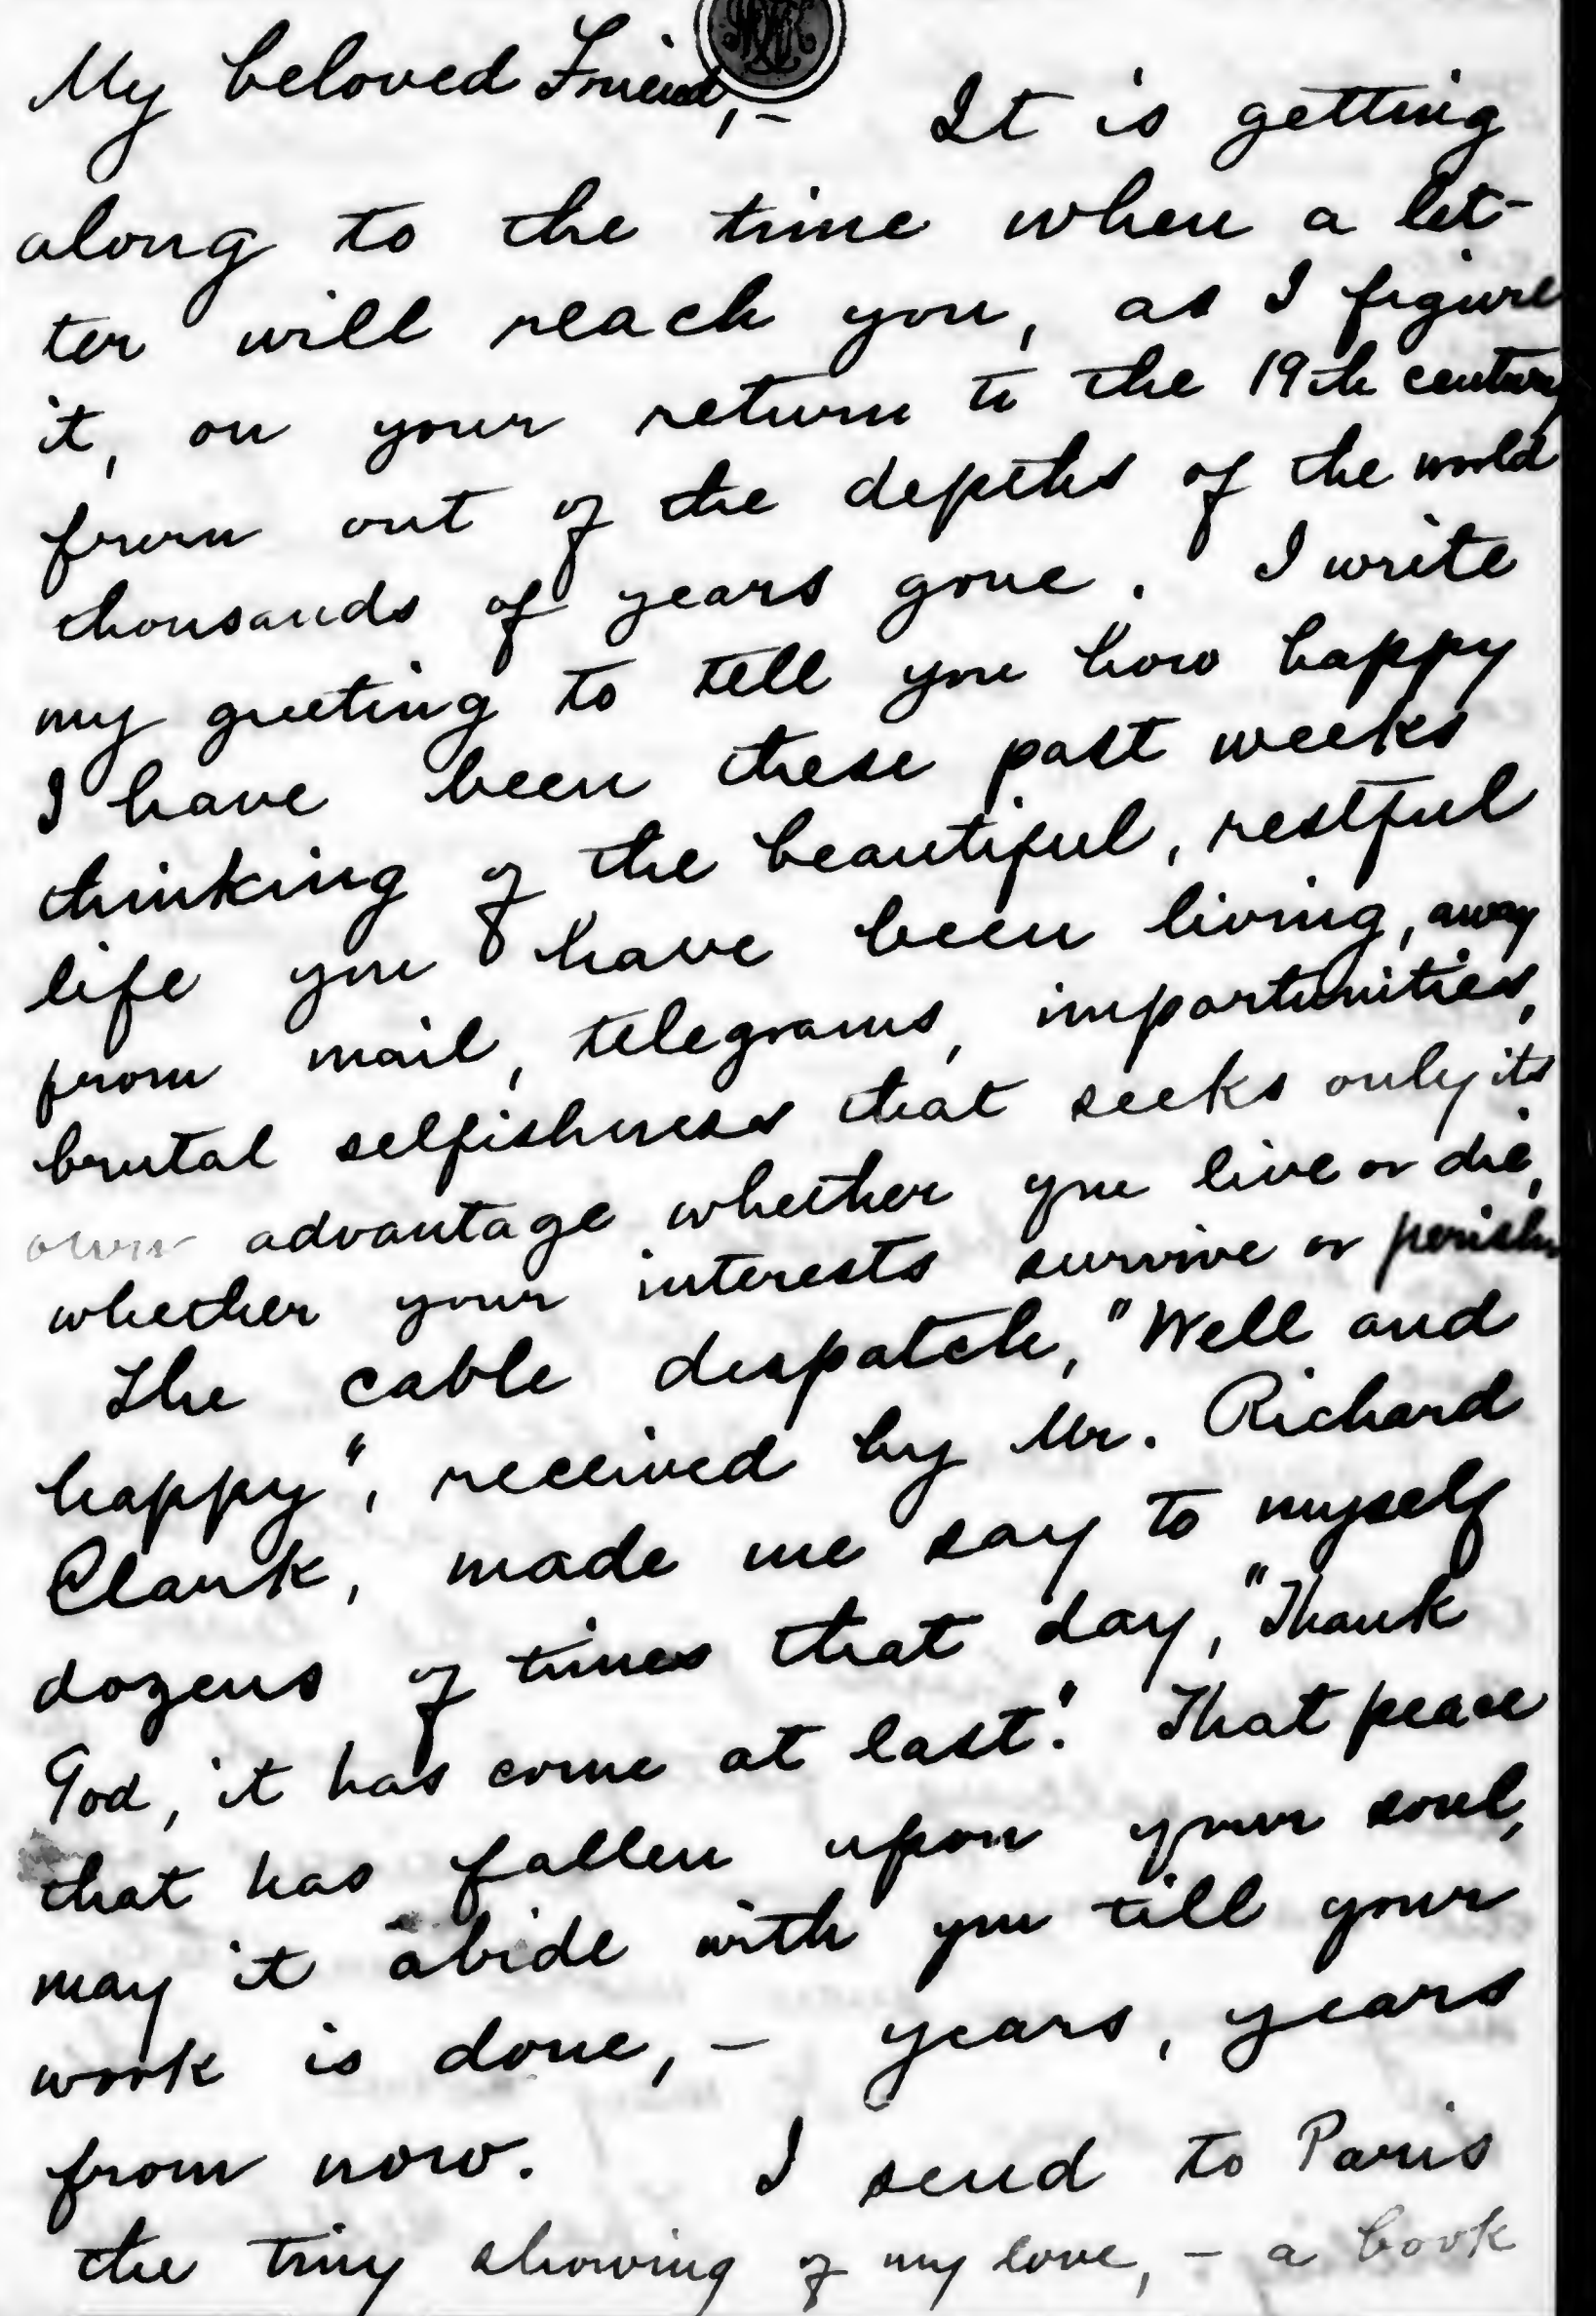 My beloved Friend,-
It is getting
along to the time when a let-
ter will reach you, as I figure
it, on your return to the 19th century
from out of the depths of the world
thousands of years gone. I write
my greeting to tell you how happy
I have been these past weeks
thinking of the beautiful, restful
life you have been living, away
from mail, telegrams, importunities,
brutal selfishness that seeks only its
own advantage whether you live or die,
whether your interests survive or perish.
The cable despatch, "Well and
happy", received by Mr. Richard
Clark, made me say to myself
dozens of times that day, "Thank
God, it has come at last." That peace
that has fallen upon your soul,
may it abide with you till your
work is done, - years, years
from now. I send to Paris
the tiny showing of my love, - a book